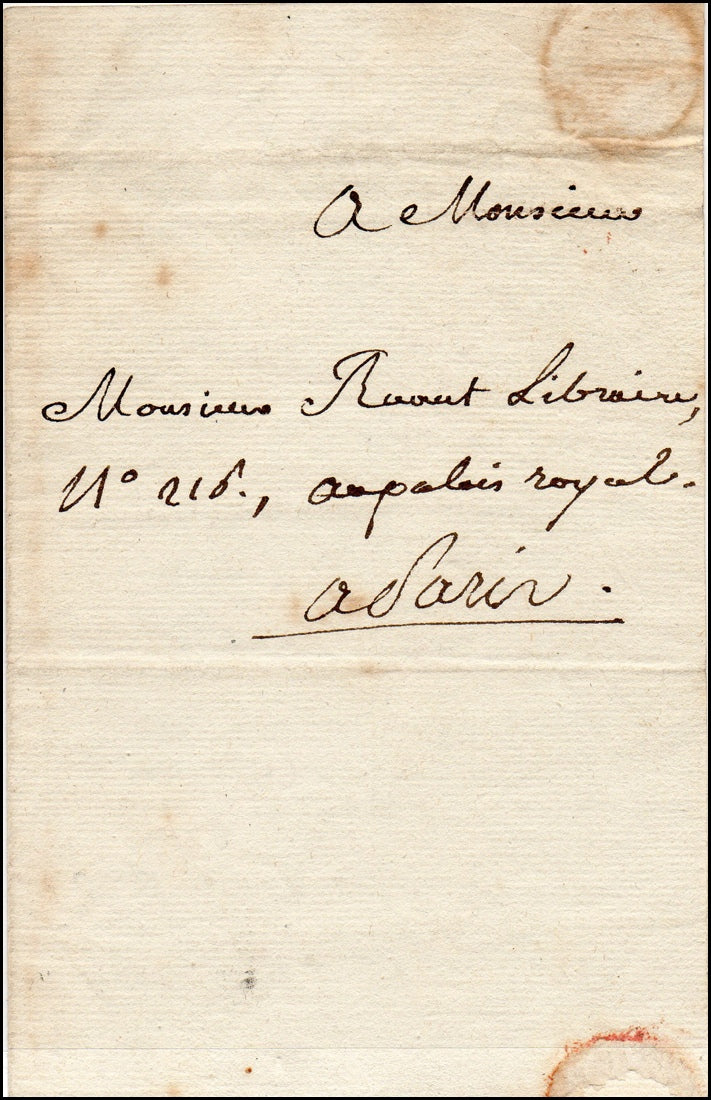 A Monsieur
Monsieur Libraire,
N° 216., au palais royal.
a Paris.